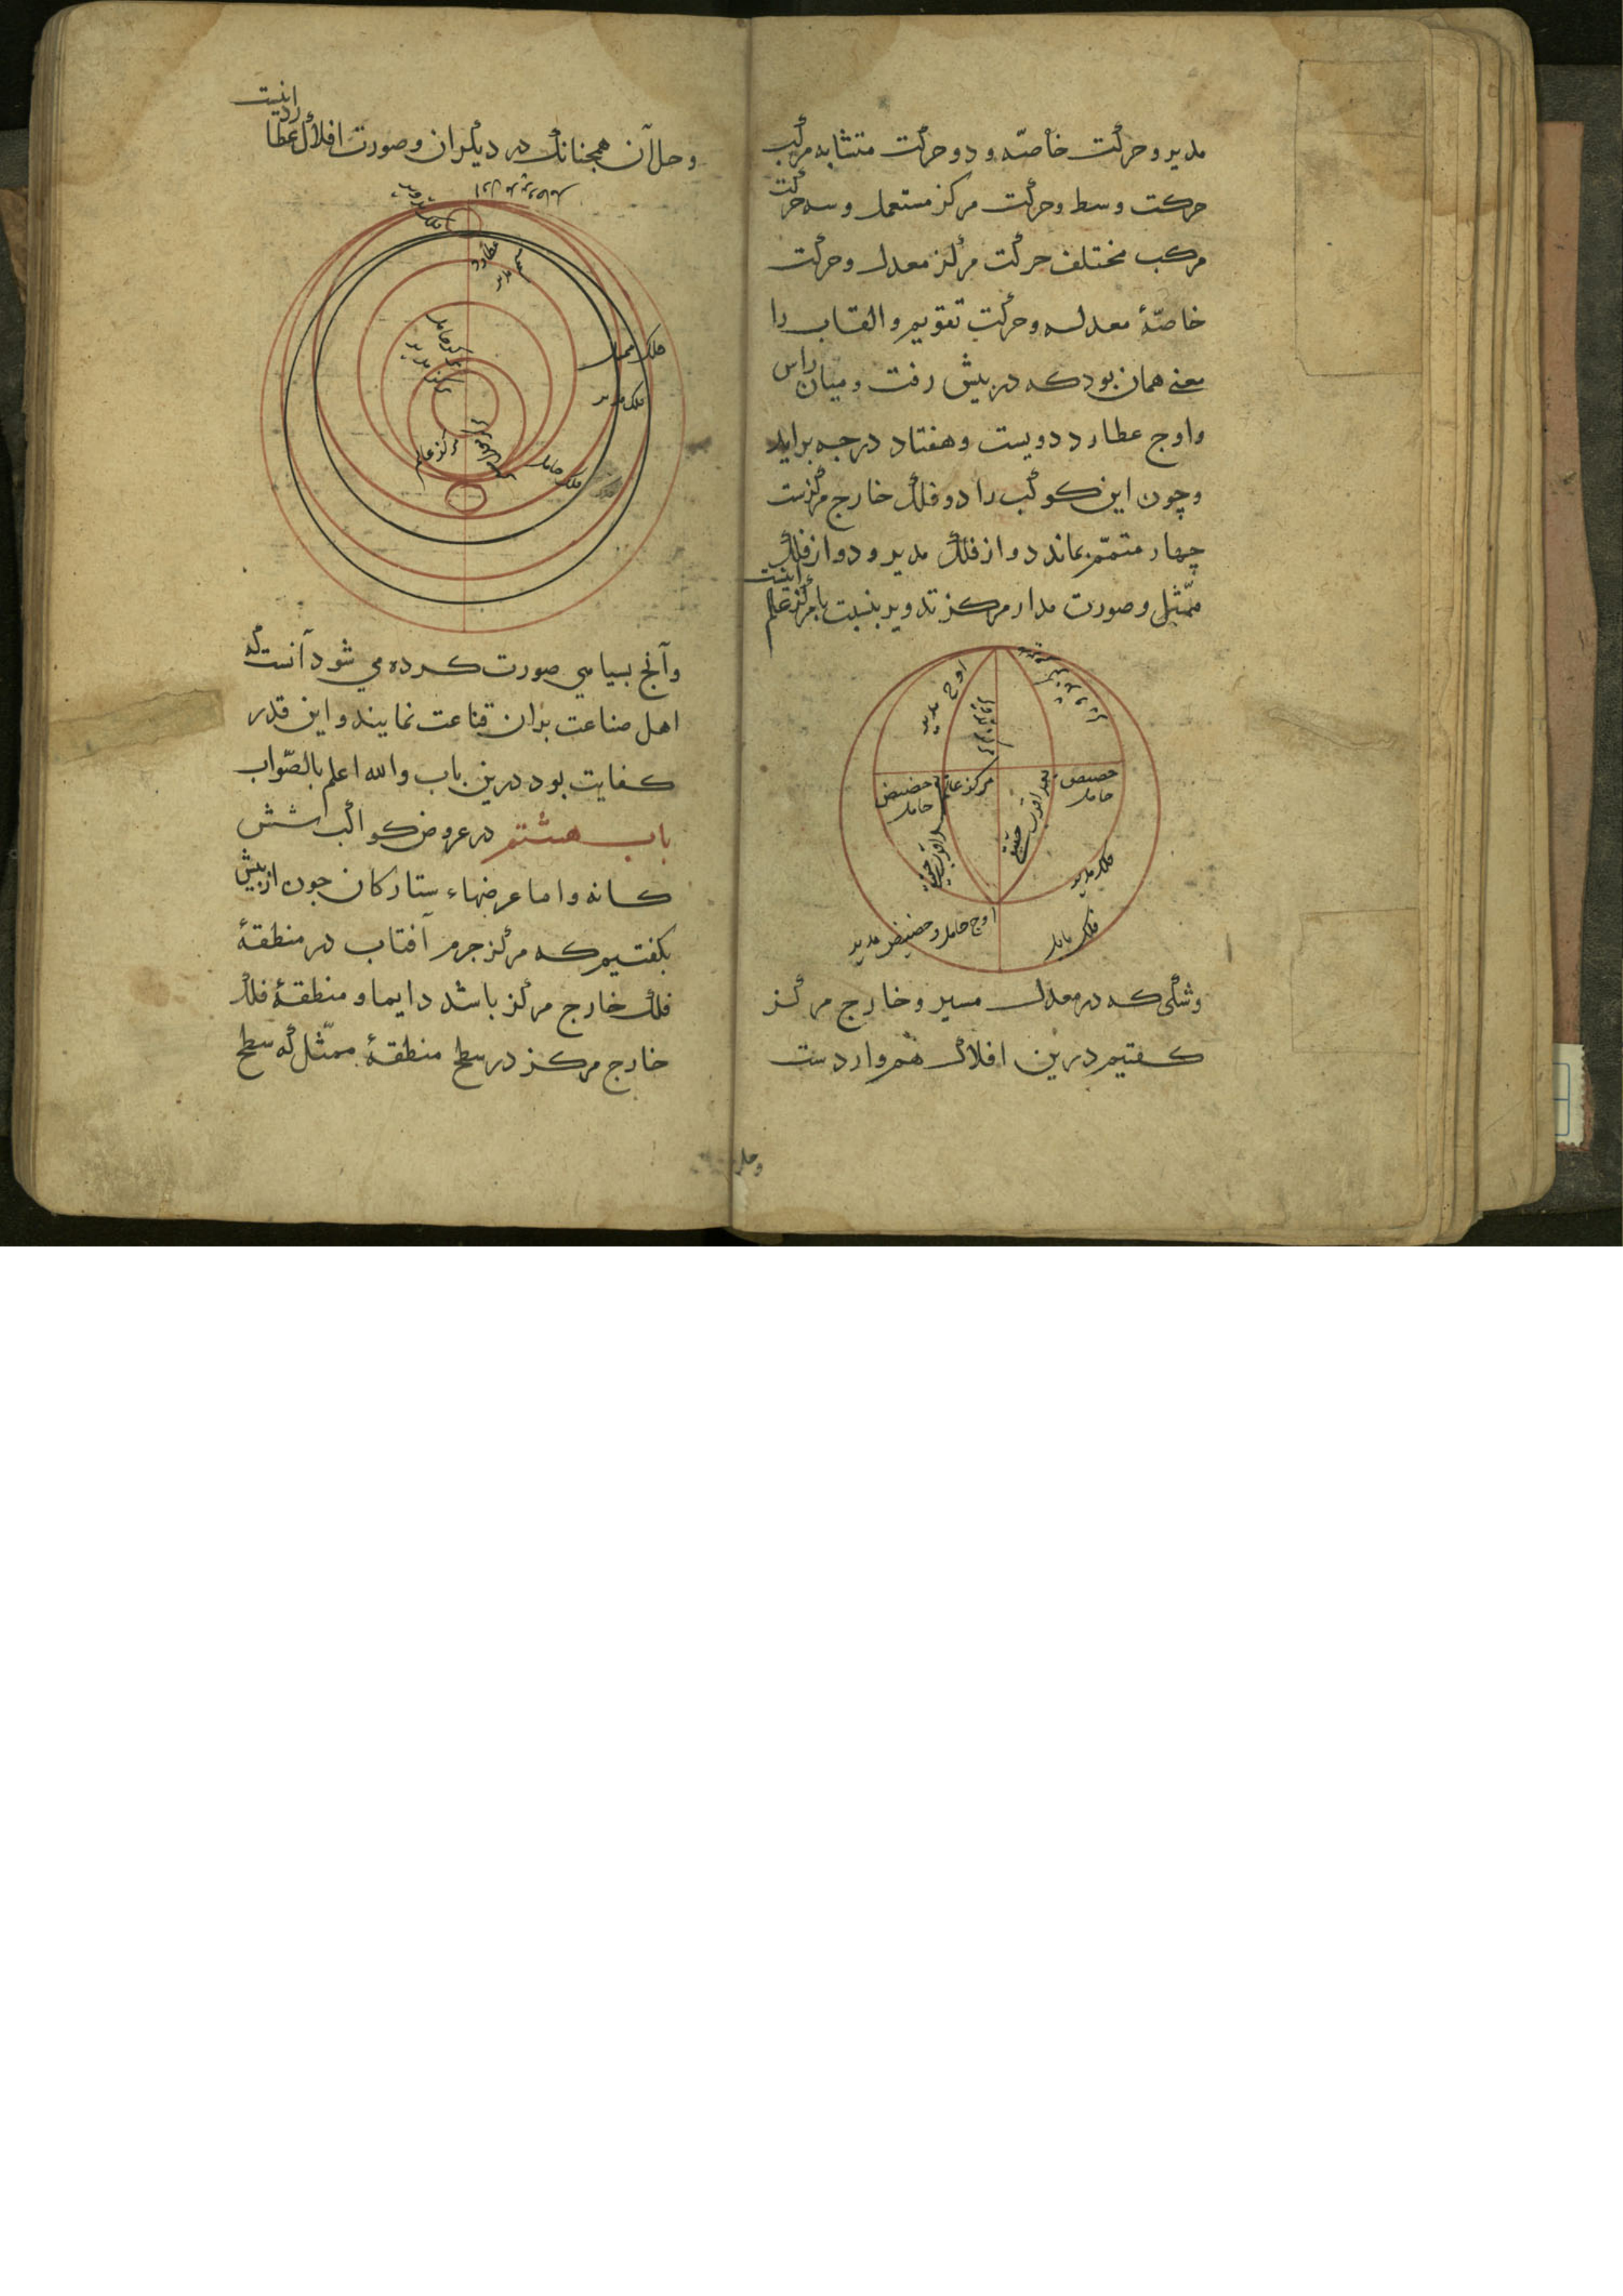 مدیر و حرکت خاصّه و دو حرکت متشابه مرکب
حرکت وسط و حرکت مرکز مستعمل و سه حرکت
مرکب مختلف حرکت مرکز معدل و حرکت
خاصّهٔ معدله و حرکت تقویم و القاب را
معنی همان بود که در پیش رفت و میان راس
و اوج عطارد دویست و هفتاد درجه براید
و چون این کوکب را دو فلک خارج مرکزست
چهار متمّم بماند دو از فلک مدیر و دو از فلک
ممّثل و صورت مدار مرکز تدویر بنسبت با مرکز عالم
اینست
اوج مدیر
مرکز عالم
حضیض حامل
حضیض حامل
بعد اقرب حقیقی
بعد اقرب حقیقی
فلک مدیر
فلک مایل
اوج حامل و حضیض مدیر
و شکی که در معدل مسیر و خارج مرکز
کفتیم درین افلاک هم واردست
و حل
و حل آن همچنانک در دیکران و صورت افلاک عطارد
اینست
عطارد
فلک ممثل
فلک مدیر
فلک حامل
مرکز عالم
و آنج بسیاهی صورت کرده می شود آنست که
اهل صناعت بران قناعت نمایند و این قدر
کفایت بود درین باب والله اعلم بالصّواب
باب هشتم در عروض کواکب شش
کانه و اما عرضهاء ستارکان چون از پیش
بکفتیم که مرکز جرم آفتاب در منطقهٔ
فلک خارج مرکز باشد دایما و منطقهٔ فلک
خارج مرکز در سطح منطقهٔ ممثّل که سطح